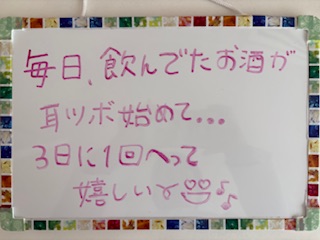 毎日、飲んでたお酒が
耳ツボ始めて...
3日に1回へって
嬉しいよ♪♪